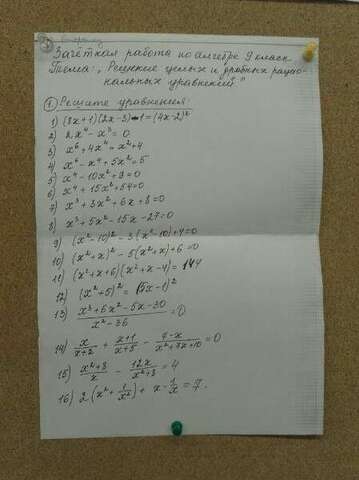 Зачётная работа по алгебре 9 класс
Тема: "Решение целых и дробных рацио-
нальных уравнений"
① Решите уравнения:
1) (8x+1)(2x-3)-1=(4x-2)²
2) 2x⁴-x³=0
3) x⁶+4x⁴=x²+4
4) x⁶-x⁴+5x²=5
5) x⁴-10x²+9=0
6) x⁴+15x²+54=0
7) x³+3x²+6x+8=0
8) x³+5x²-15x-27=0
9) (x²-10)²-3(x²-10)+4=0
10) (x²+x)²-5(x²+x)+6=0
11) (x²+x+6)(x²+x-4)=144
12) (x²+5)²=(5x-1)²
13) (x³+6x²-5x-30)/(x²-36)=0
14) x/(x+2)+(x+1)/(x+5)-(7-x)/(x²+7x+10)=0
15) (x²+3)/x-12x/(x²+3)=4
16) 2(x²+1/x²)+x-1/x=7.